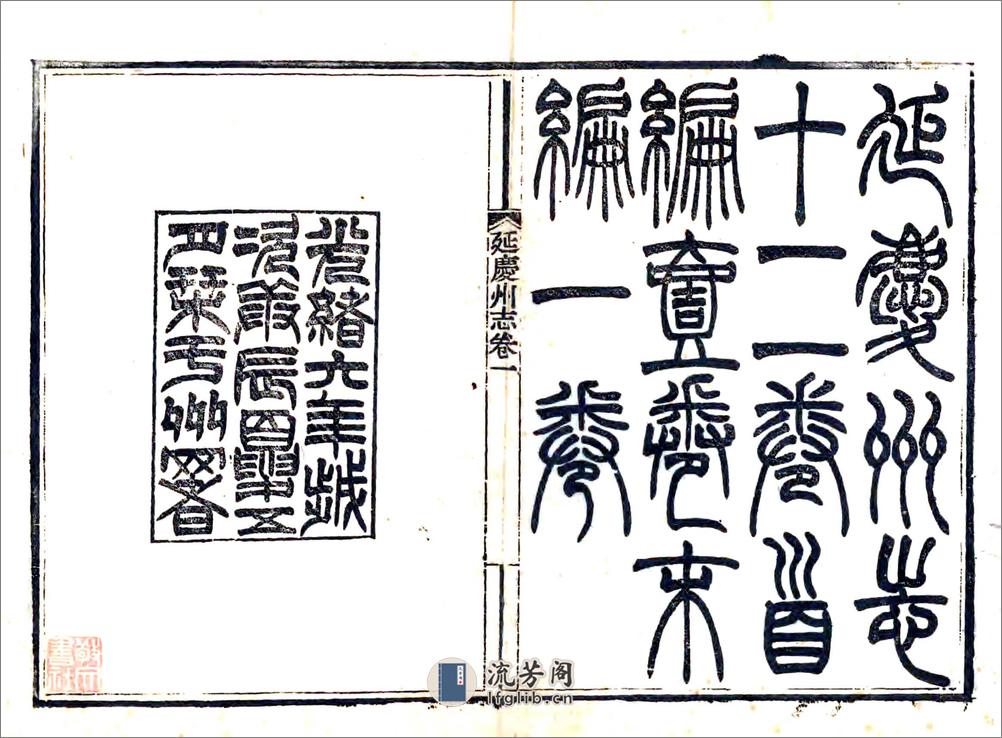 延慶州志
十二卷首
編壹卷末
編一卷
延慶州志卷一
光緒六年歲
次庚辰五
月栞于州署
流芳阁
lfglib.cn